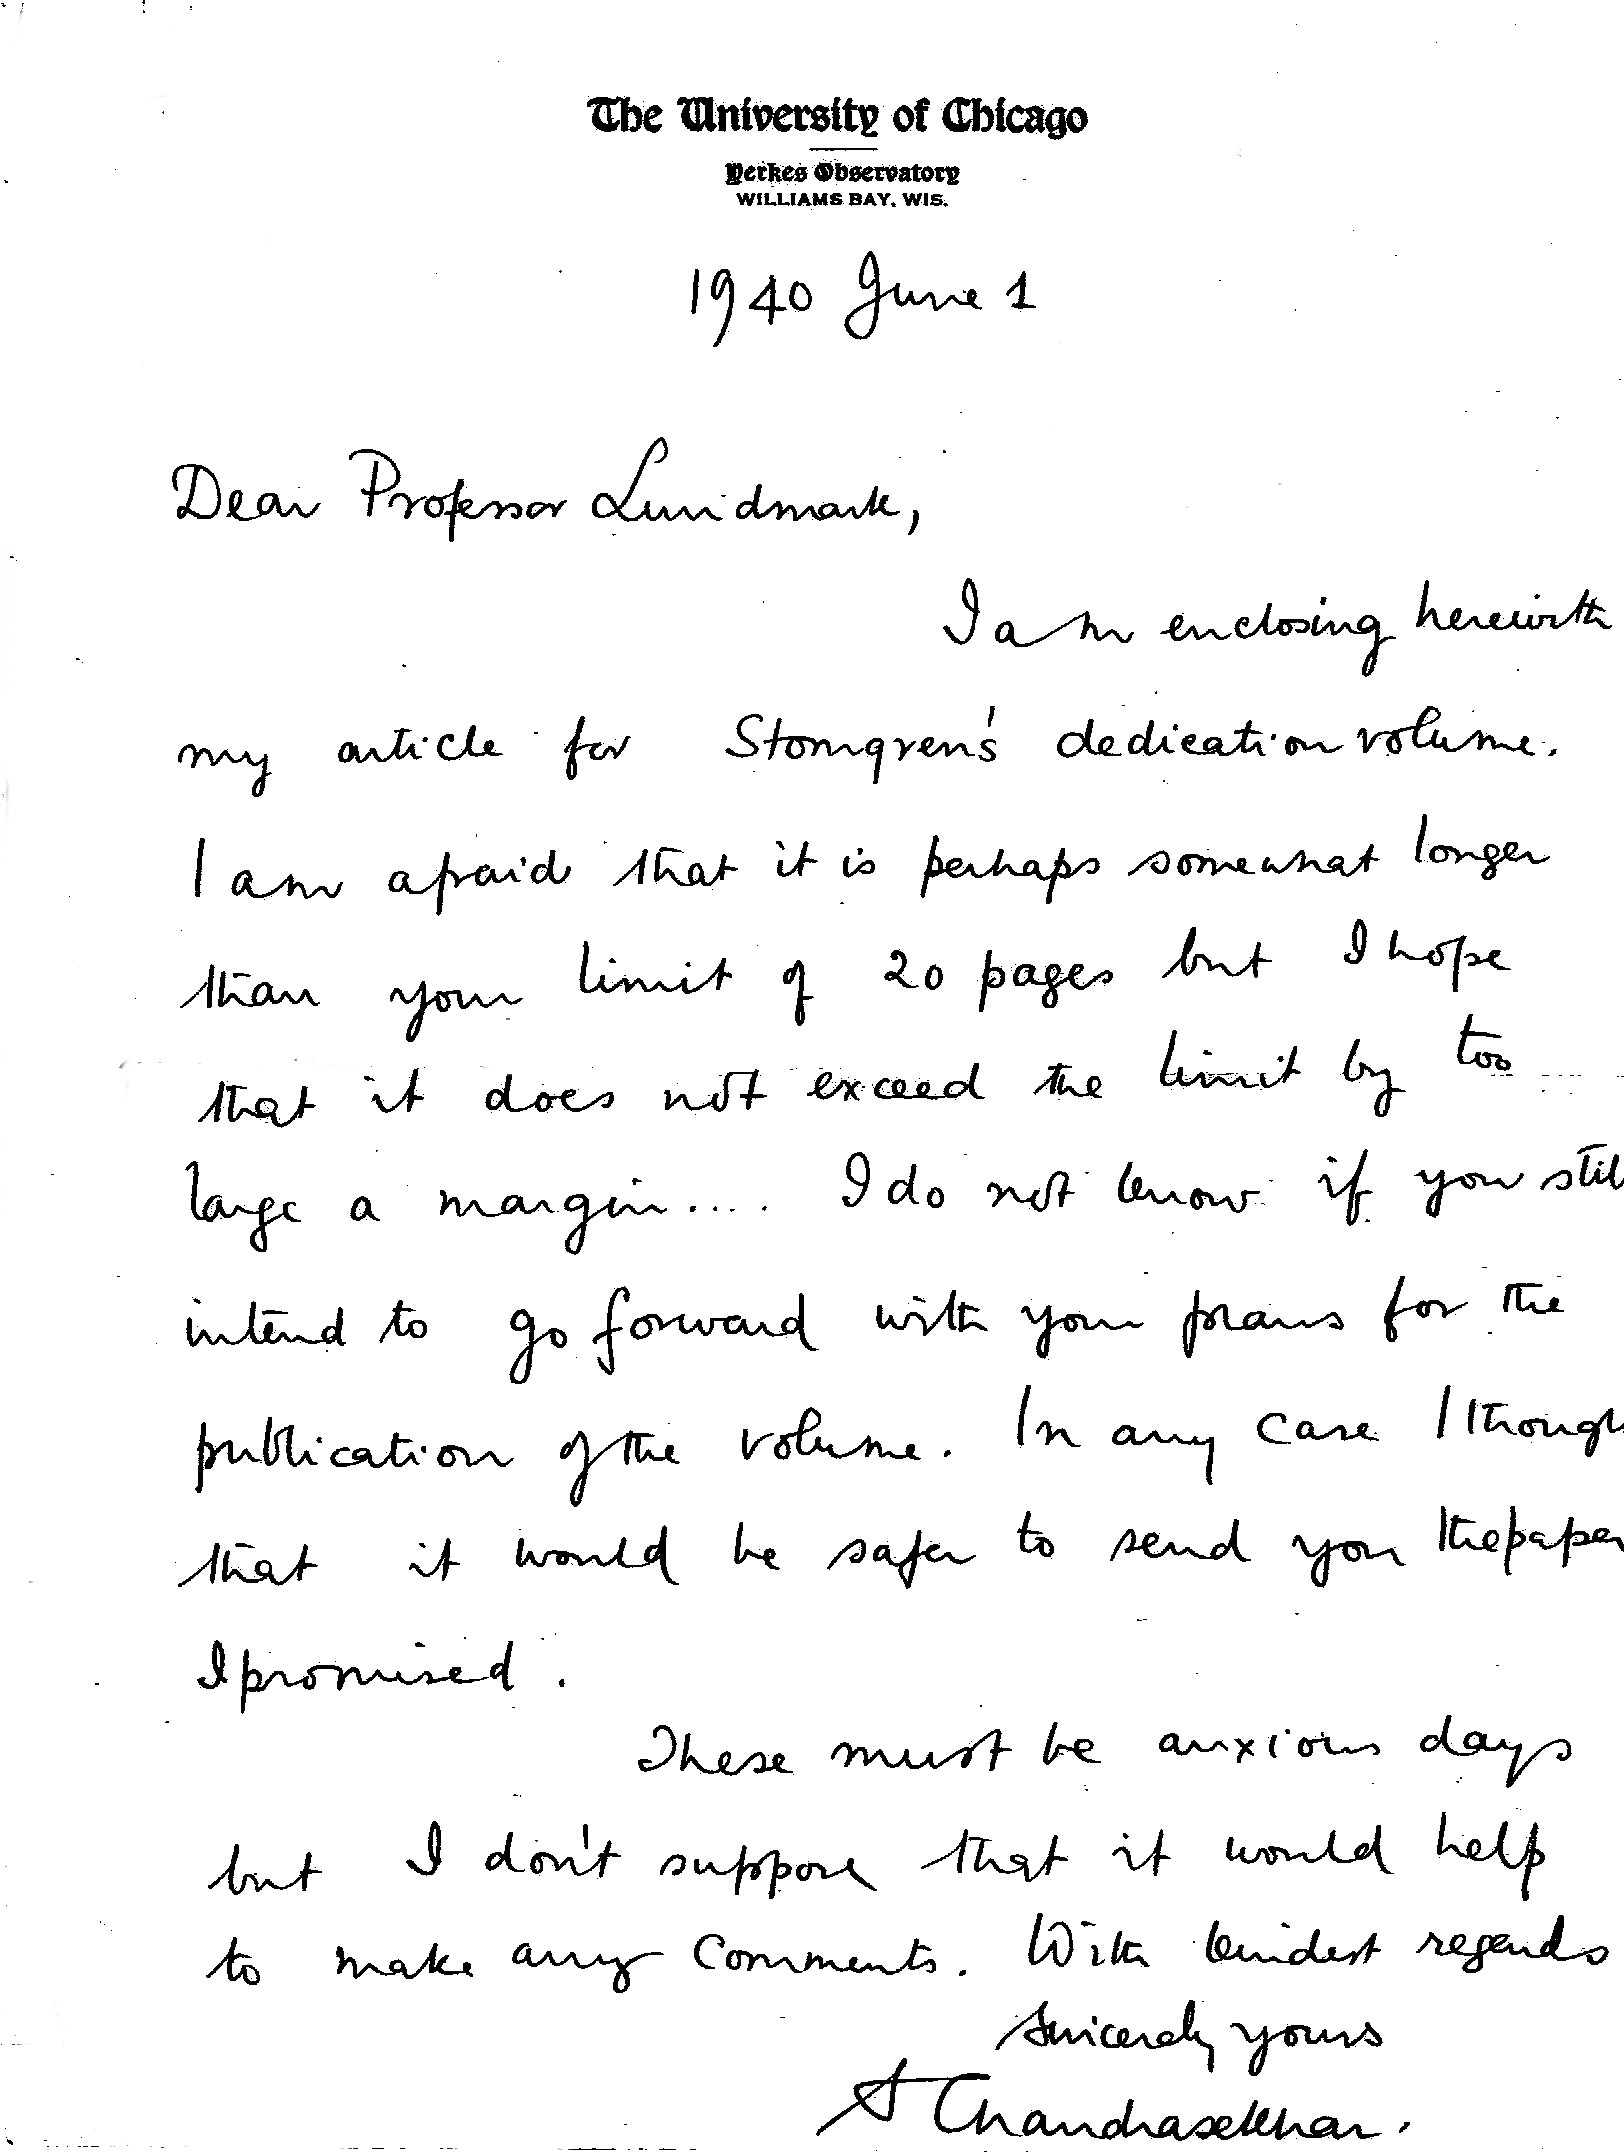 The University of Chicago
Yerkes Observatory
WILLIAMS BAY, WIS.
1940 June 1
Dear Professor Lundmark,
I am enclosing herewith
my article for Stomgren's dedication volume.
I am afraid that it is perhaps somewhat longer
than your limit of 20 pages but I hope
that it does not exceed the limit by too
large a margin.... I do not know if you still
intend to go forward with your plans for the
publication of the volume. In any case I though
that it would be safer to send you the paper
I promised.
These must be anxious days
but I don't suppose that it would help
to make any comments. With kindest regards
Sincerely yours
S Chandrasekhar.